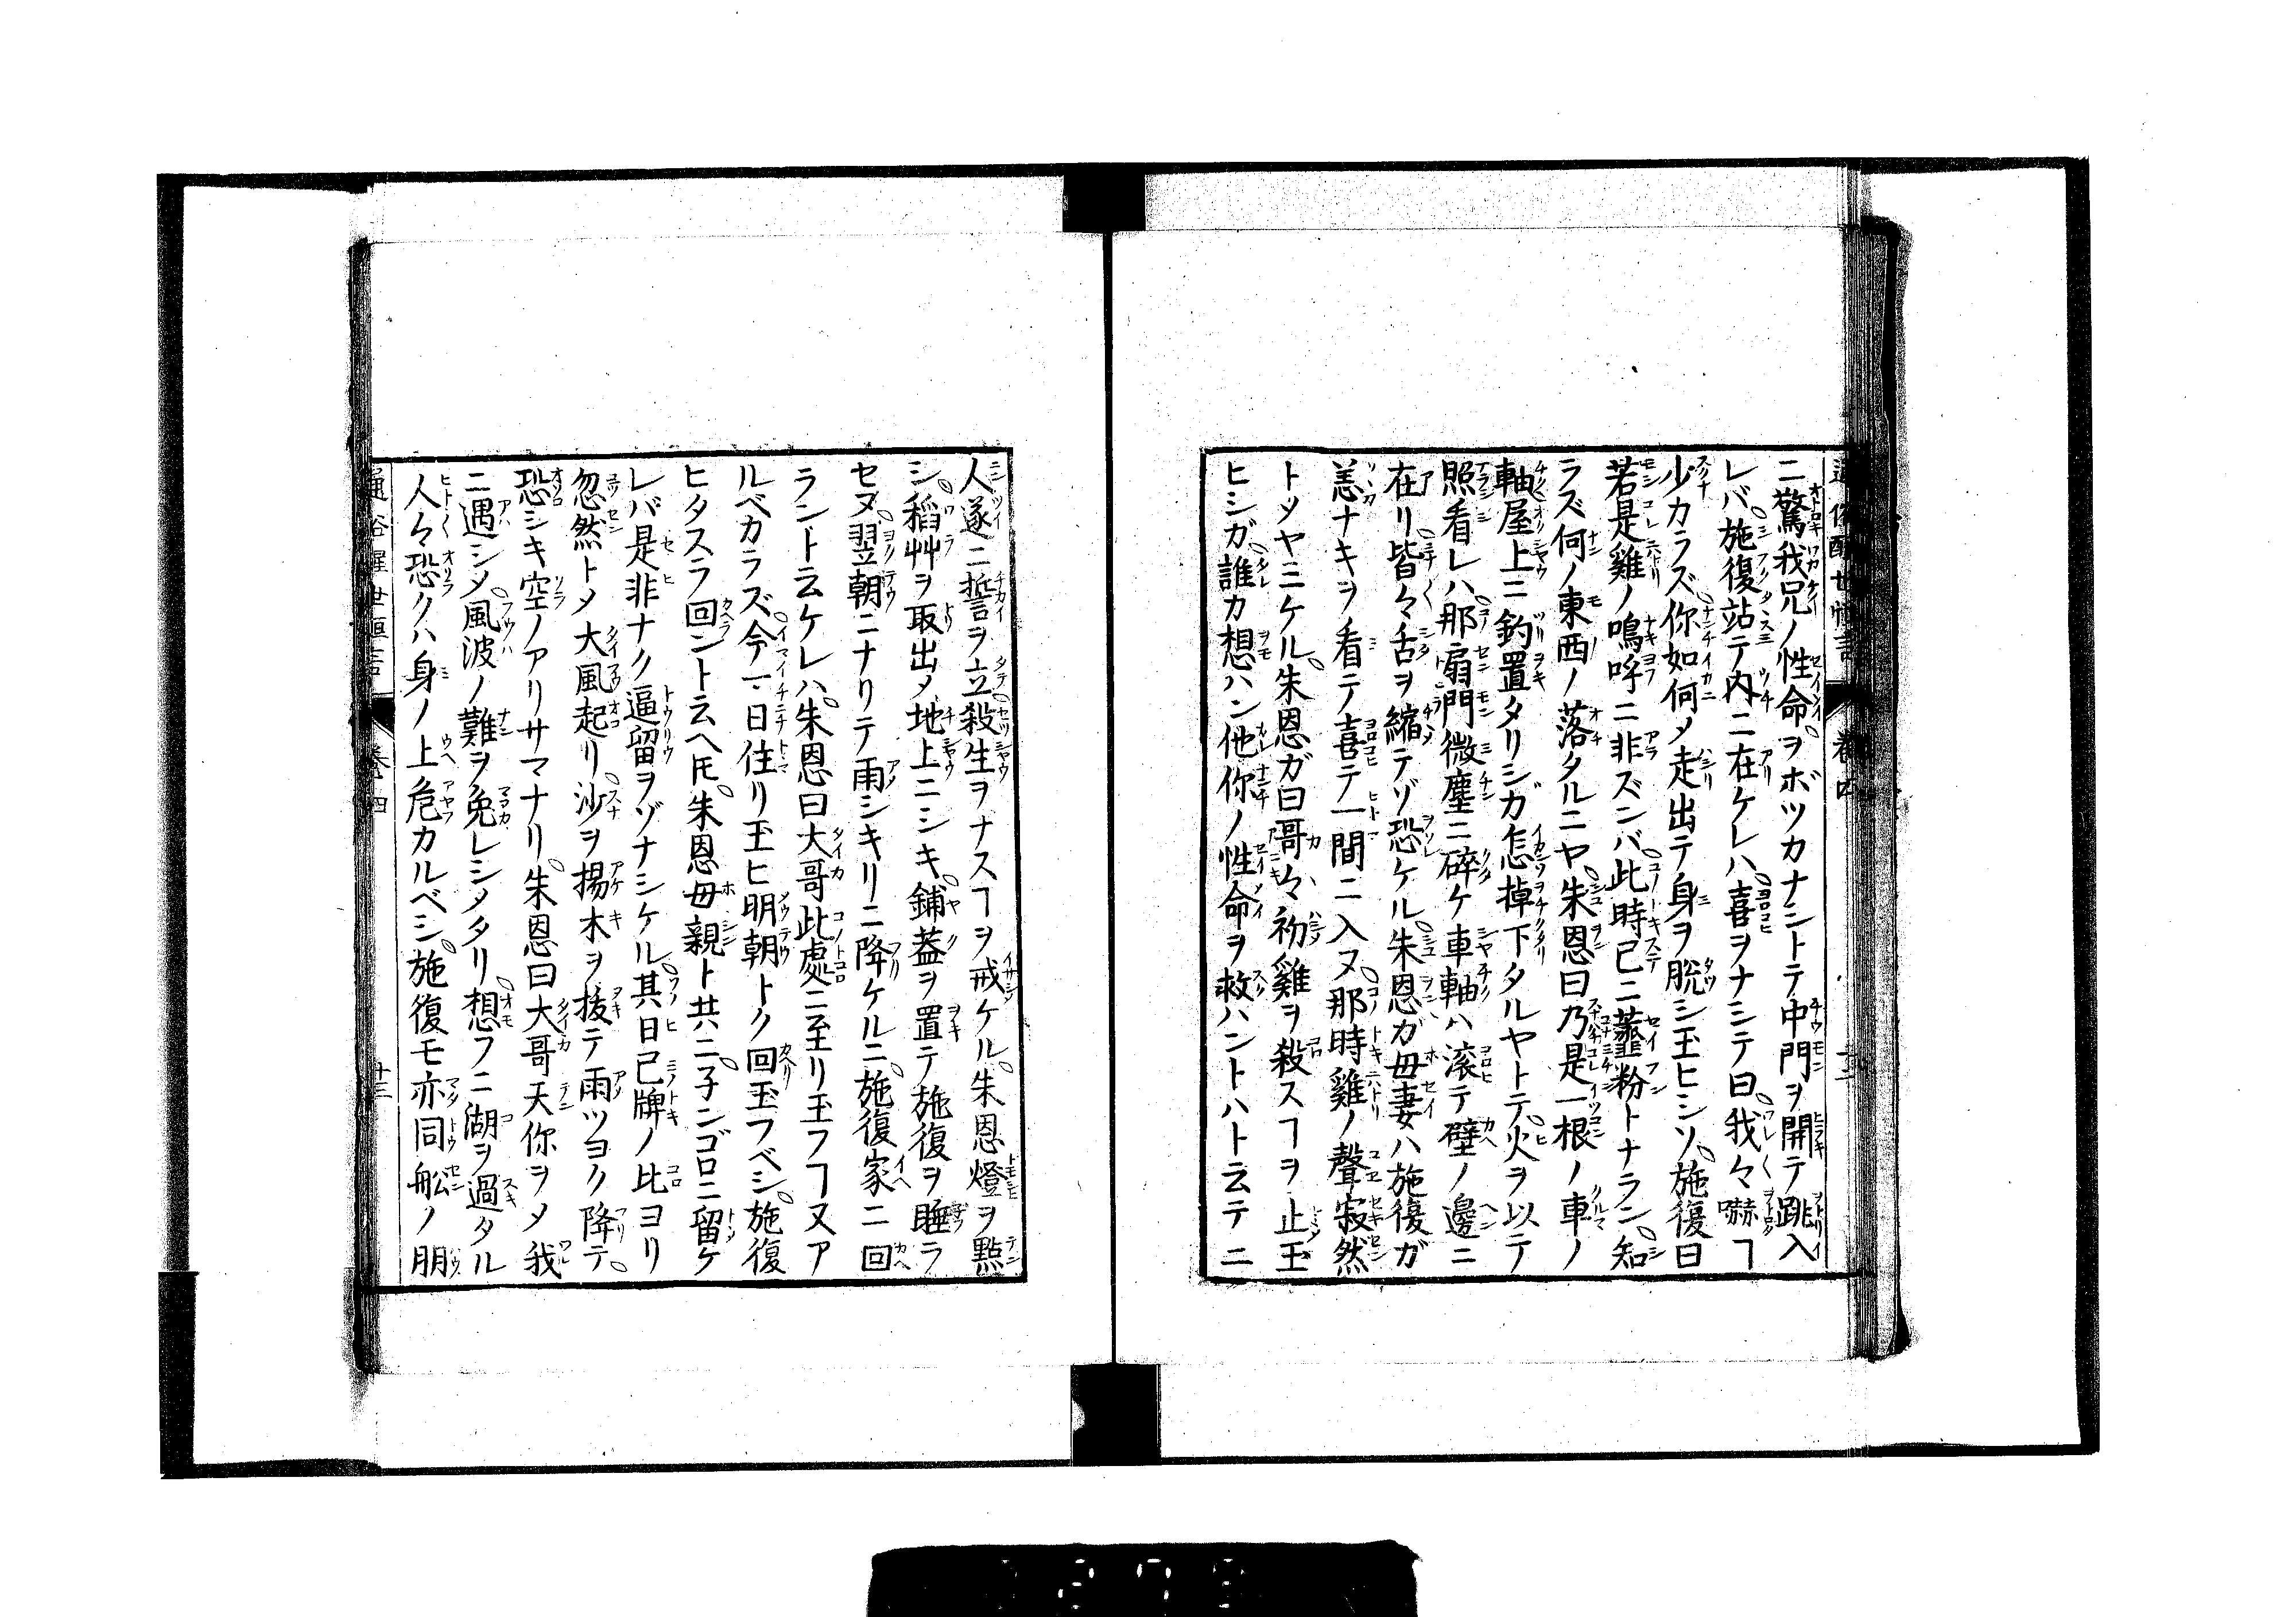 ニ驚我兄ノ性命ヲボツカナシトテ中門ヲ開テ跳入
レバ施復站テ内ニ在ケレハ喜ヲナシテ曰我々嚇ヿ
少カラズ你如何メ走出テ身ヲ脱シ玉ヒシソ施復曰
若是雞ノ鳴呼ニ非ズンバ此時已ニ虀粉トナラン知
ラズ何ノ東西ノ落タルニヤ朱恩曰乃是一根ノ車ノ
軸屋上ニ釣置タリシガ怎掉下タルヤトテ火ヲ以テ
照看レハ那扇門微塵ニ碎ケ車軸ハ滚テ壁ノ邊ニ
在リ皆々舌ヲ縮テゾ恐ケル朱恩ガ毋妻ハ施復ガ
恙ナキヲ看テ喜テ一間ニ入ヌ那時雞ノ聲寂然
トメヤミケル朱恩ガ曰哥々初雞ヲ殺スヿヲ止玉
ヒシガ誰カ想ハン他你ノ性命ヲ救ハントハト云テ二
人遂ニ誓ヲ立殺生ヲナスヿヲ戒ケル朱恩燈ヲ㸃
シ稻艸ヲ取出メ地上ニシキ鋪蓋ヲ置テ施復ヲ睡ラ
セヌ翌朝ニナリテ雨シキリニ降ケルニ施復家ニ回
ラント云ケレハ朱恩曰大哥此處ニ至リ玉フヿ又ア
ルベカラズ今一日住リ玉ヒ明朝トク回玉フベシ施復
ヒタスラ回ントト云ヘ𪜈朱恩毋親ト共ニ子ンゴロニ留ケ
レバ是非ナク逼留ヲゾナシケル其日已牌ノ比ヨリ
忽然トメ大風起リ沙ヲ揚木ヲ拔テ雨ツヨク降テ
恐シキ空ノアリサマナリ朱恩曰大哥天你ヲメ我
ニ遇シメ風波ノ難ヲ免レシメタリ想フニ湖ヲ過タル
人々恐クハ身ノ上危カルベシ施復モ亦同舩ノ朋
通俗醒世恒言 卷四 十三